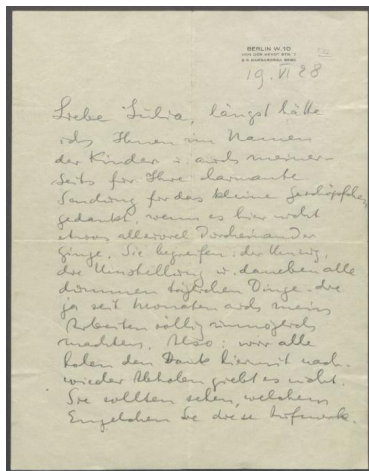 BERLIN W.10
VON DER HEYDT STR. 7
19. VI 28
Liebe Julia, längst hätte
ich Ihnen im Namen
der Kinder u. auch meiner-
seits für Ihre charmante
Sendung für das kleine Geschöpfchen
gedankt, wenn es hier nicht
etwas allzuviel Durcheinander
ginge. Sie begreifen: der Umzug,
die Umstellung u. daneben alle
dummen täglichen Dinge, die
ja seit Monaten auch mein
Arbeiten völlig unmöglich
machten. Also: wir alle
holen den Dank hiermit nach.
wieder Abholen giebt es nicht.
Sie sollten sehen, welchem
Engelchen Sie diese Aufmerk-